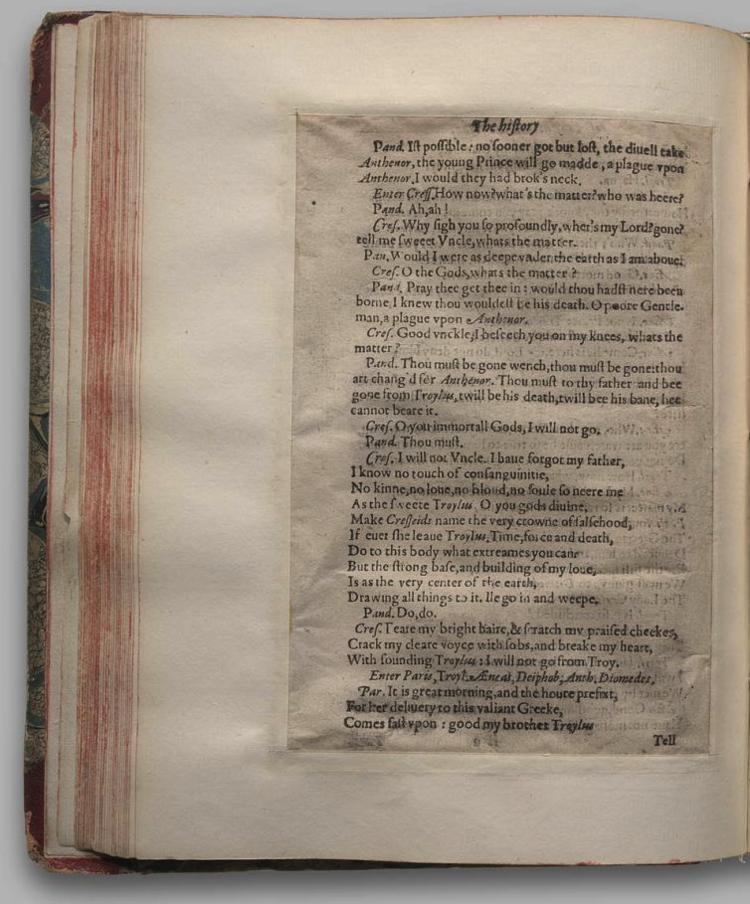 The history
Pand. Ist possible: no sooner got but lost, the diuell take
Anthenor, the young Prince will go madde, a plague vpon
Anthenor, I would they had brok's neck.
Enter Cress. How now? what's the matter? who was heere?
Pand. Ah, ah!
Cres. Why sigh you so profoundly, wher's my Lord? gone?
tell me sweeet Vncle, whats the matter.
Pan. Would I were as deepe vnder the earth as I am aboue.
Cres. O the Gods, whats the matter?
Pand. Pray thee get thee in: would thou hadst nere been
borne, I knew thou wouldest be his death. O poore Gentle-
man, a plague vpon Anthenor.
Cres. Good vnckle, I beseech you on my knees, whats the
matter?
Pand. Thou must be gone wench, thou must be gone: thou
art chang'd for Anthenor. Thou must to thy father and bee
gone from Troylus, twill be his death, twill bee his bane, hee
cannot beare it.
Cres. O you immortall Gods, I will not go.
Pand. Thou must.
Cres. I will not Vncle. I haue forgot my father,
I know no touch of consanguinitie,
No kinne, no loue, no bloud, no soule so neere me
As the sweete Troylus. O you gods diuine,
Make Cresseids name the very crowne of falsehood,
If euer she leaue Troylus. Time, force and death,
Do to this body what extreames you can:
But the strong base, and building of my loue,
Is as the very center of the earth,
Drawing all things to it. Ile go in and weepe.
Pand. Do, do.
Cres. Teare my bright haire, & scratch my praised cheekes,
Crack my cleare voyce with sobs, and breake my heart,
With sounding Troylus: I will not go from Troy.
Enter Paris, Troyl. Æneas, Deiphob, Anth. Diomedes.
Par. It is great morning, and the houre prefixt,
For her deliuery to this valiant Greeke,
Comes fast vpon: good my brother Troylus
Tell